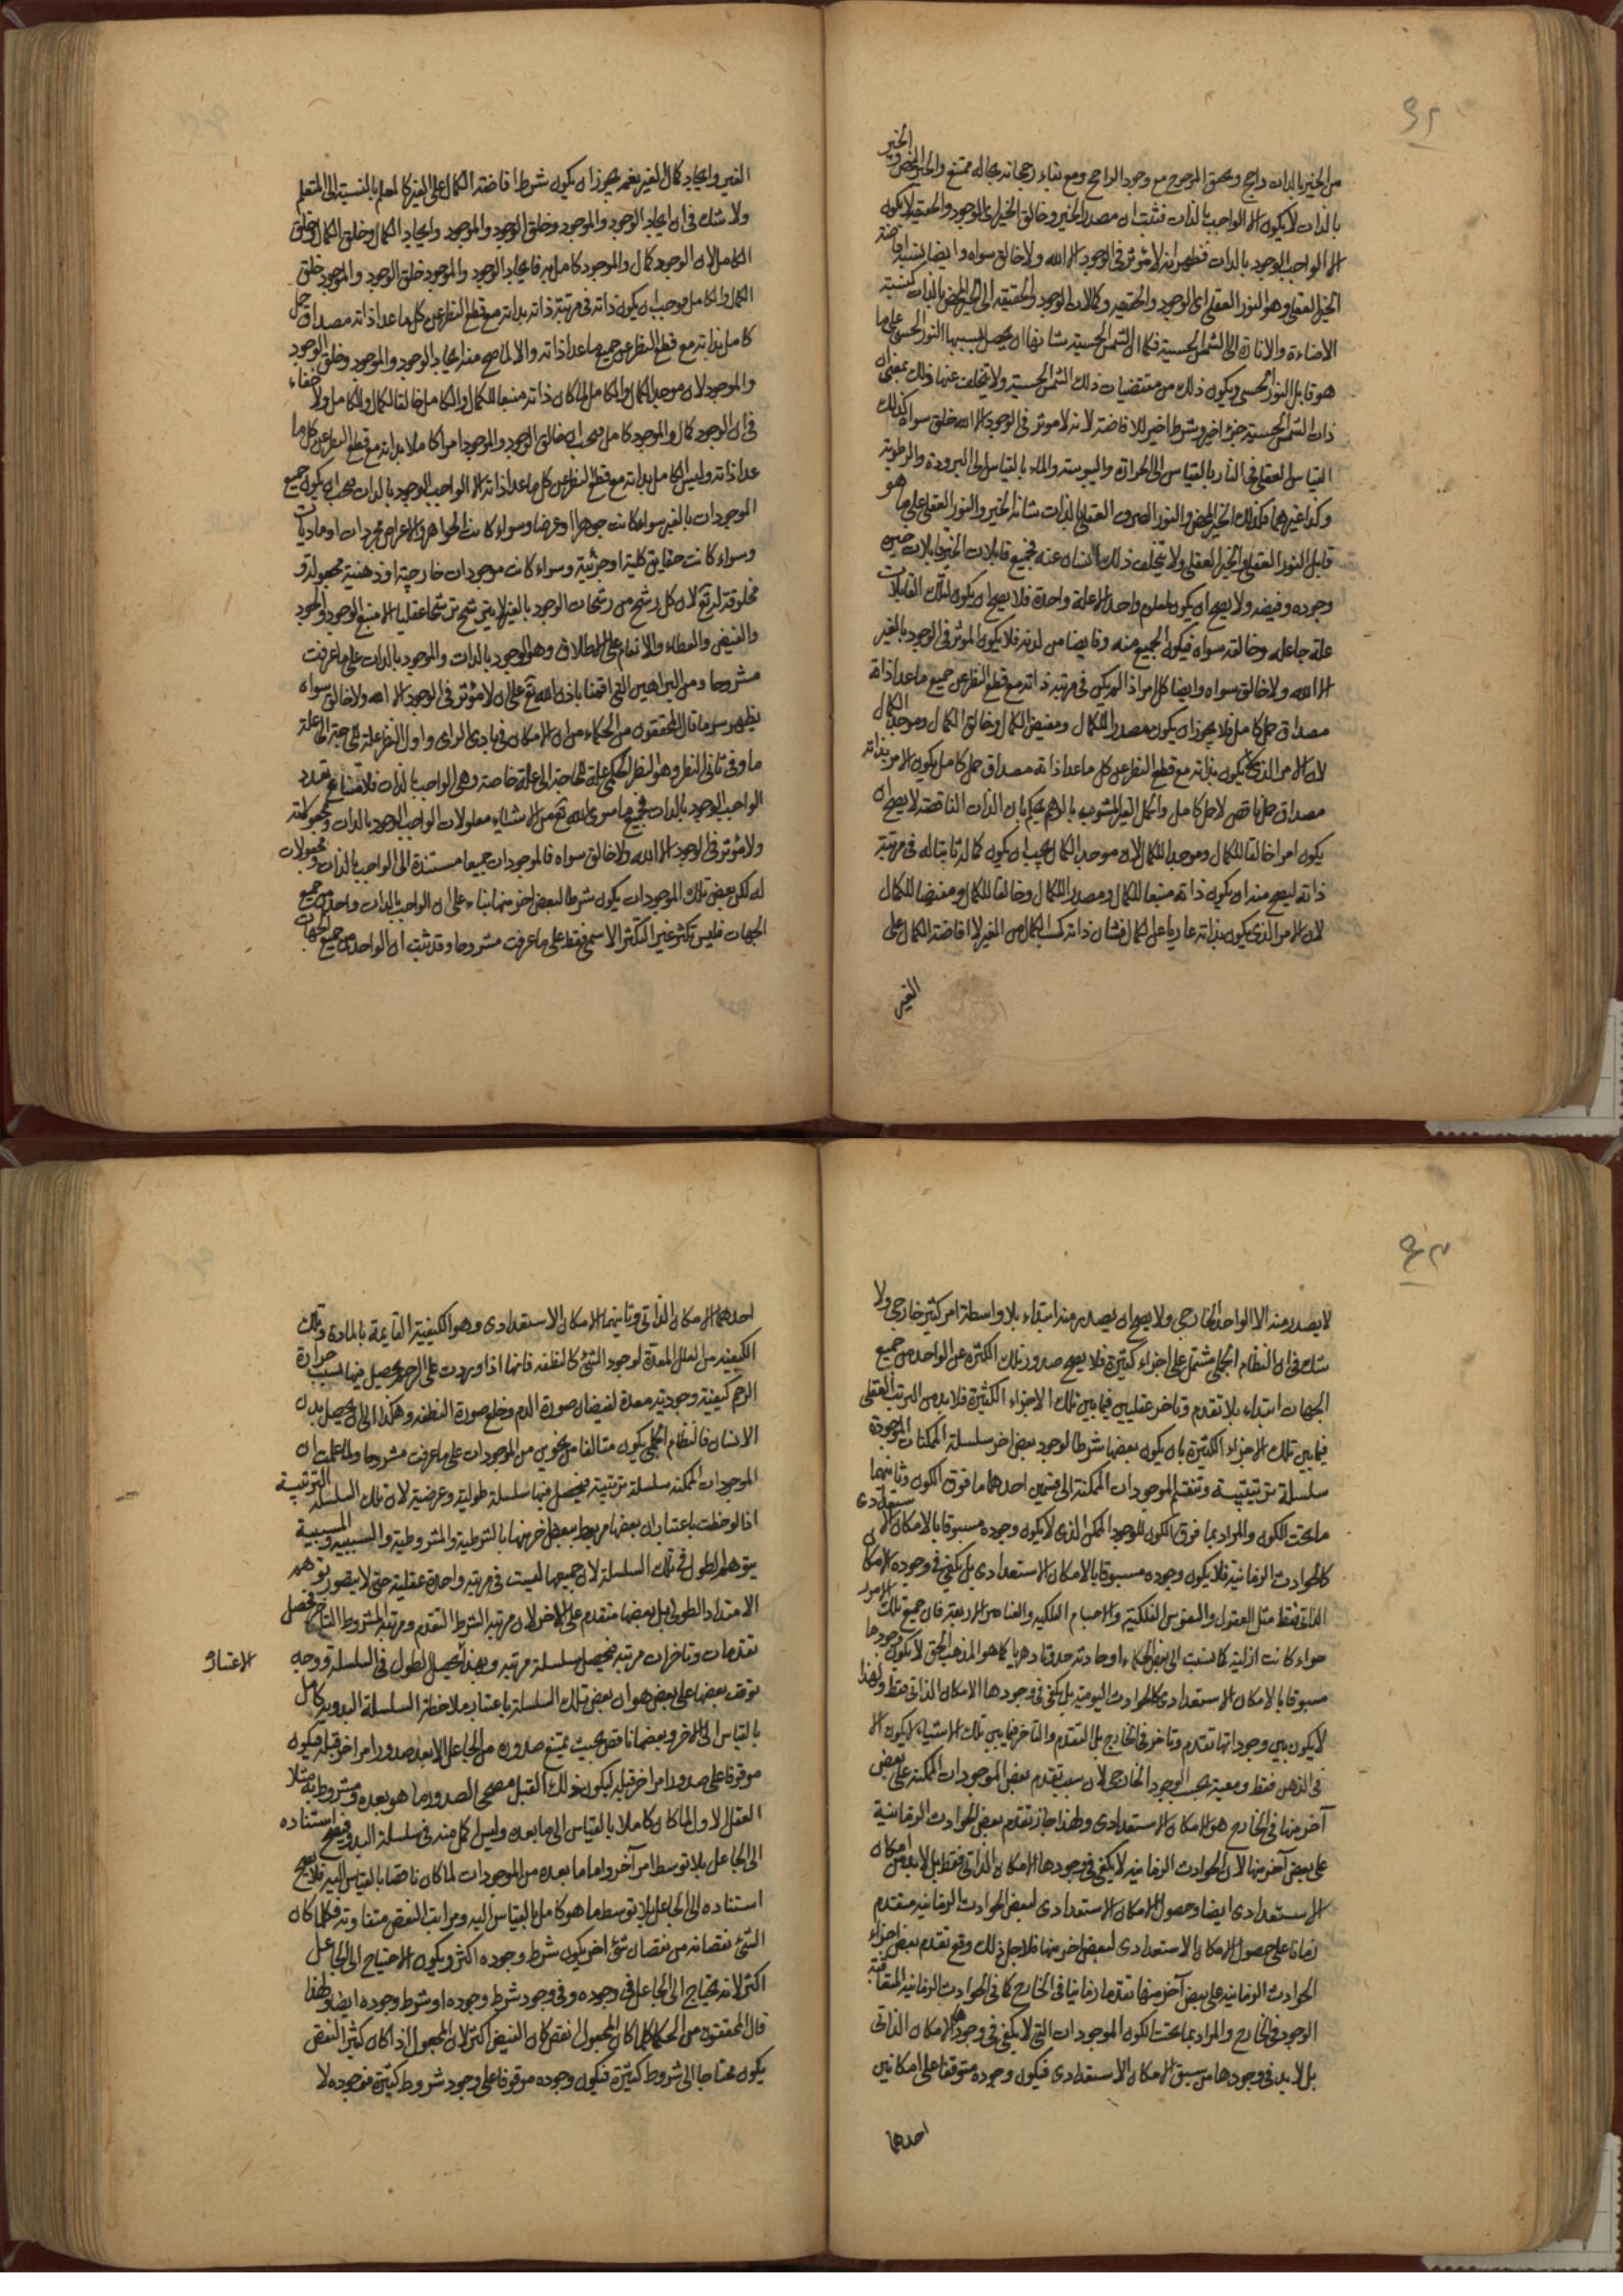 ٩٢
من الخير بالذات راجح وتحقق المرجوح مع وجود الراجح ومع بقاء رجحانه بحاله ممتنع والخير المحض والخير
بالذات لا يكون الا الواجب بالذات فثبت ان مصدر الخير وخالق الخير اى الوجود والحقيقة لا يكون
الا الواجب الوجود بالذات فظهر انه لا مؤثر فى الوجود الا الله ولا خالق سواه وايضا نسبة افاضة
الخير العقلى وهو النور العقلى اى الوجود والحقيقة وكمالات الوجود والحقيقة الى الخير المحض بالذات كنسبة
الاضاءة والانارة الى الشمس الحسية فكما ان الشمس الحسية شانها ان يحصل بسببها النور الحسى على ما
هو قابل النور الحسى ويكون ذلك من مقتضيات ذلك الشمس الحسية ولا يتخلف عنها ذلك بمعنى ان
ذات الشمس الحسية جزء اخير وشرط اخير للافاضة لانه لا موثر فى الوجود الا الله خلق سواه كذلك
القياس العقلى فى النار بالقياس الى الحرارة واليبوسة والماء بالقياس الى البرودة والرطوبة
وكذا غيرهما فكذلك الخير المحض والنور الصرف العقلى بالذات شانه الخير والنور العقلى على ما هو
قابل النور العقلى والخير العقلى ولا يتخلف ذلك الشان عنه فجميع قابلات الخير قابلات خيره
وجوده وفيضه ولا يصح ان يكون لمعلول واحد الا علة واحدة فلا يصح ان يكون لتلك القابلات
علة جاعله وخالقه سواه فيكون الجميع منه وفايضا من لدنه فلا يكون المؤثر فى الوجود بالغير
الا الله ولا خالق سواه وايضا كل امر اذا لم يكن فى مرتبة ذاته مع قطع النظر عن جميع ما عدا ذاته
مصداق حمل كامل فلا يجوز ان يكون مصدر الكمال ومفيض الكمال وخالق الكمال وموجد الكمال
لان الامر الذى لا يكون بذاته مع قطع النظر عن كل ما عدا ذاته مصداق حمل كامل يكون الامر بذاته
مصداق حمل ناقص لا حمل كامل والعقل الغير المشوب بالوهم يحكم بان الذات الناقصة لا يصح ان
يكون امرا خالقا للكمال وموجدا للكمال لان موجد الكمال يجب ان يكون كماله ثابتا له فى مرتبة
ذاته ليصح منه ان يكون ذاته منبعا للكمال ومصدر الكمال وخالقا للكمال ومفيضا للكمال
لان الامر الذى يكون بذاته عاريا عن الكمال فشان ذاته كسب الكمال من الغير لا افاضة الكمال على
الغير
الغير وايجاد كمال الغير نعم يجوز ان يكون شرط افاضة الكمال على الغير كالمعلم بالنسبة الى المتعلم
ولا شك فى ان ايجاد الوجود والموجود وخلق الوجود والموجود وايجاد الكمال وخلق الكمال وخلق
الكامل لان الوجود كمال والموجود كامل به فايجاد الوجود والموجود خلق الوجود والموجود خلق
الكمال والكامل فوجب ان يكون ذاته فى مرتبة ذاته بذاته مع قطع النظر عن كل ما عدا ذاته مصداق حمل
كامل بذاته مع قطع النظر عن جميع ما عدا ذاته والا لما صح منه ايجاد الوجود والموجود وخلق الوجود
والموجود لان موجد الكمال والكامل لما كان ذاته منبعا للكمال والكامل خالقا للكمال والكامل ولا خفاء
فى ان الوجود كمال والموجود كامل فيجب ان خالق الوجود والموجود امرا كاملا بذاته مع قطع النظر عن كل ما
عدا ذاته وليس الكامل بذاته مع قطع النظر عن كل ما عدا ذاته الا الواجب الوجود بالذات فيجب ان يكون جميع
الموجودات بالغير سواء كانت جوهرا او عرضا وسواء كانت الجواهر والاعراض مجردات او ماديات
وسواء كانت حقايق كلية او جزئية وسواء كانت موجودات خارجية او ذهنية مجعولة و
مخلوقة له تع لان كل رشح من رشحات الوجود بالغير لا يترشح ترشحا عقليا الا من منبع الوجود والجود
والفيض والعطاء والانعام على الاطلاق وهو الوجود بالذات والموجود بالذات على ما عرفت
مشروحا ومن البراهين التى اقمنا باذن الله تع على ان لا مؤثر فى الوجود الا الله ولا خالق سواه
يظهر سر ما قال المحققون من الحكماء من ان الامكان فى بادى الراى واول النظر علة الحاجة الى علة
ما وفى ثانى النظر وهو النظر الحكمى علة الحاجة الى علة خاصة وهى الواجب بالذات فلامتناع تعدد
الواجب الوجود بالذات فجميع ما سوى الله تع من الاشياء معلولات الواجب الوجود بالذات ومجعولة
ولا مؤثر فى الوجود الا الله ولا خالق سواه فالموجودات جميعا مستندة الى الواجب بالذات ومجعولات
له لكن بعض تلك الموجودات يكون شرطا لبعض اخر منها بناء على ان الواجب بالذات واحد من جميع
الجهات فليس تكثر غير التكثر الاسمى فقط على ما عرفت مشروحا وقد ثبت ان الواحد من جميع الجهات
٩٣
لا يصدر منه الا الواحد الخارجى ولا يصح ان يصدر منه ابتداء بلا واسطة امر كثير خارجى ولا
شك فى ان النظام الجملى مشتمل على اجزاء كثيرة فلا يصح صدور تلك الكثرة عن الواحد من جميع
الجهات ابتداء بلا تقدم وتاخر عقليين فيما بين تلك الاجزاء الكثيرة فلا بد من الترتب العقلى
فيما بين تلك الاجزاء الكثيرة بان يكون بعضها شرطا لوجود بعض اخر سلسلة الممكنات الموجودة
سلسلة ترتيبية وتنقسم الموجودات الممكنة الى قسمين احدهما ما فوق الكون وثانيهما
ما تحت الكون والمراد بما فوق الكون الموجود الممكن الذى لا يكون وجوده مسبوقا بالامكان الاستعدادى
كالحوادث الزمانية فلا يكون وجوده مسبوقا بالامكان الاستعدادى بل يكفى فى وجوده الامكان
الذاتى فقط مثل العقول والنفوس الفلكية والاجسام الفلكية والعناصر الاربعة فان جميع تلك الامور
سواء كانت ازلية كما نسب الى بعض الحكماء او حادثة حدوثا دهريا كما هو المذهب الحق لا يكون وجودها
مسبوقا بالامكان الاستعدادى كالحوادث اليومية بل يكفى فى وجودها الامكان الذاتى فقط ولهذا
لا يكون بين وجوداتها تقدم وتاخر فى الخارج بل التقدم والتاخر فيما بين تلك الاشياء لا يكون الا
فى الذهن فقط ومعية بحسب الوجود الخارجى لان سبب تقدم بعض الموجودات الممكنة على بعض
آخر منها فى الخارج هو الامكان الاستعدادى ولهذا جاز تقدم بعض الحوادث الزمانية
على بعض آخر منها لان الحوادث الزمانية لا يكفى فى وجودها الامكان الذاتى فقط بل لا بد من امكان
الاستعدادى ايضا وحصول الامكان الاستعدادى لبعض الحوادث الزمانية متقدم
زمانا على حصول الامكان الاستعدادى لبعض اخر منها فلاجل ذلك وقع تقدم بعض اجزاء
الحوادث الزمانية على بعض آخر منها تقدما زمانيا فى الخارج كما فى الحوادث الزمانية المتعاقبة
الوجود فى الخارج والمراد بما تحت الكون الموجودات التى لا يكفى فى وجودها الامكان الذاتى
بل لا بد فى وجودها من سبق الامكان الاستعدادى فيكون وجوده متوقفا على امكانين
احدهما
احدهما الامكان الذاتى وثانيهما الامكان الاستعدادى وهو الكيفية القايمة بالمادة وتلك
الكيفية من العلل المعدة لوجود الشئ كالنطفة فانها اذا وردت على الرحم يحصل فيها بسبب حرارة
الرحم كيفية وجودية معدة لفيضان صورة الدم وخلع صورة النطفة وهكذا الى ان يحصل بدن
الانسان فالنظام الجملى يكون متالفا من نحوين من الموجودات على ما عرفت مشروحا ولما علمت ان
الموجودات الممكنة سلسلة ترتيبية فيحصل فيها سلسلة طولية وعرضية لان تلك السلسلة الترتيبية
اذا لوحظت باعتبار ان بعضها مربوط ببعض اخر منها بالشرطية والمشروطية والسببية والمسببية
يتوهم الطول فى تلك السلسلة لان جميعها ليست فى مرتبة واحدة عقلية حتى لا يتصور توهم
الامتداد الطولى بل بعضها متقدم على الاخر لان مرتبة الشرط التقدم ومرتبة المشروط التاخر فحصل
تقدمات وتاخرات مرتبة فيحصل سلسلة مرتبة وبهذا يحصل الطول فى السلسلة ووجه
الاعتبار
توقف بعضها على بعض هو ان بعض تلك السلسلة باعتبار ملاحظة السلسلة البدوية كامل
بالقياس الى الاخر وبعضها ناقص بحيث يمتنع صدوره من الجاعل الا بعد صدور امر اخر قبله فيكون
موقوفا على صدور امر اخر قبله ليكون ذلك القبل مصحح الصدور ما هو بعده ومشروط به مثلا
العقل الاول لما كان كاملا بالقياس الى ما بعده وليس اكمل منه فى سلسلة البدو فيصح استناده
الى الجاعل بلا توسط امر آخر واما ما بعده من الموجودات لما كان ناقصا بالقياس اليه فلا يصح
استناده الى الجاعل بلا توسط ما هو كامل بالقياس اليه ومراتب النقص متفاوتة فكلما كان
الشئ نقصانه من نقصان شئ اخر يكون شرط وجوده اكثر ويكون الاحتياج الى الجاعل
اكثر لانه يحتاج الى الجاعل فى وجوده وفى وجود شرط وجوده او شرط وجوده ايضا ولهذا
قال المحققون من الحكماء كلما كان المجعول انقص كان الفيض اكثر لان المجعول اذا كان كثير النقص
يكون محتاجا الى شروط كثيرة فيكون وجوده موقوفا على وجود شروط كثيرة فوجوده لا